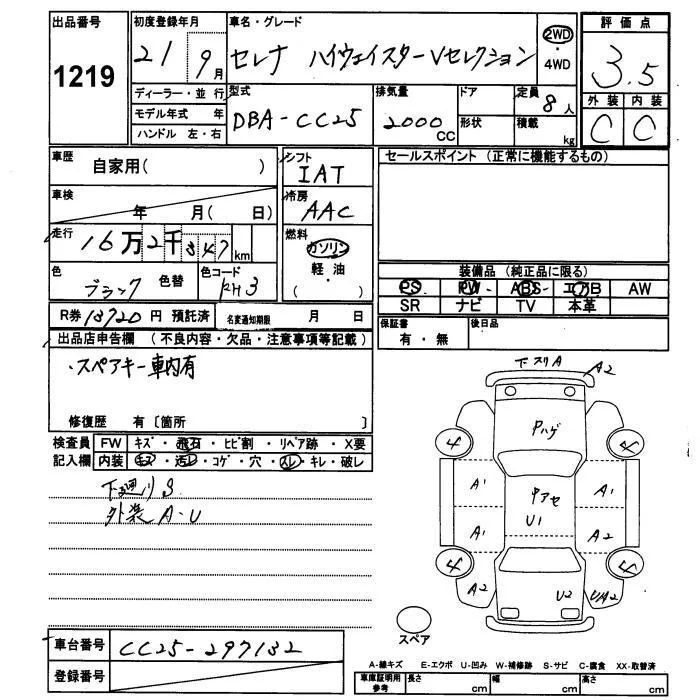 出品番号
1219
初度登録年月
21 9月
車名・グレード
セレナ ハイウェイスターVセレクション
2WD
・
4WD
評価点
3.5
外装 内装
C C
ディーラー・並行
モデル年式 年
ハンドル 左・右
型式
DBA-CC25
排気量
2000cc
ドア
形状
定員
8人
積載
kg
車歴
自家用( )
車検
年 月( 日)
走行
16万2千347km
色
ブラック 色替
色コード
KH3
シフト
IAT
冷房
AAC
燃料
ガソリン
軽油
( )
セールスポイント (正常に機能するもの)
装備品 (純正品に限る)
PS PW ABS エアB AW
SR ナビ TV 本革
R券 円 預託済
名変通知期限 月 日
保証書
有・無
後日品
出品店申告欄 (不良内容・欠品・注意事項等記載)
・スペアキー車内有
修復歴 有〔箇所 〕
検査員 FW キズ・飛石・ヒビ割・リペア跡・X要
記入欄 内装 キズ・汚レ・コゲ・穴・スレ・キレ・破レ
下廻りS
外装A・U
下スリA
A2
Pハゲ
4 4
A1 中アセ A1
U1
A1 A2
4 4
A2 U2 U/A2
スペア
車台番号
CC25-297132
登録番号
A-線キズ E-エクボ U-凹み W-補修跡 S-サビ C-腐食 XX-取替済
車庫証明用
参考
長さ cm 幅 cm 高さ cm